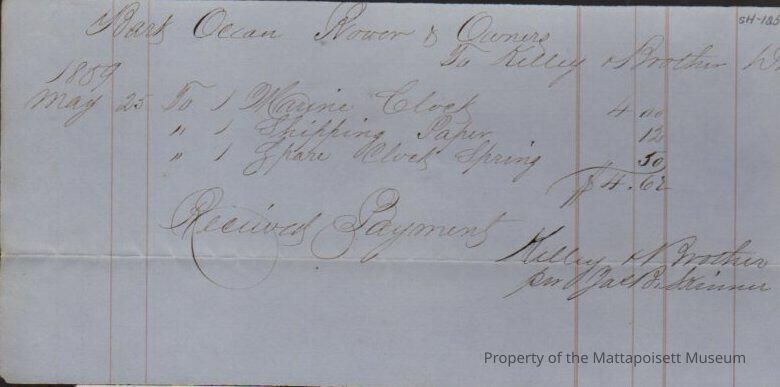 SH-185
Bark Ocean Rover & Owners
To Kelley & Brother Dr
1859
May 25 To 1 Marine Clock 4 00
" 1 Shipping Paper 12
" 1 Spare Clock Spring 50
$4.62
Recieved Payment
Kelley & Brother
per Skinner
Property of the Mattapoisett Museum